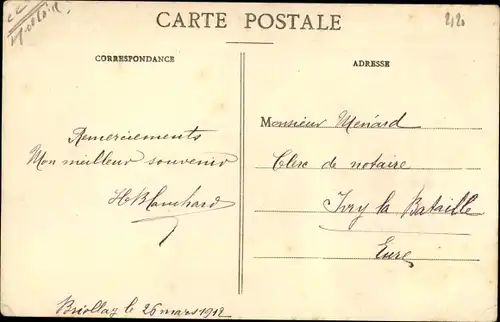 CARTE POSTALE
CORRESPONDANCE
ADRESSE
Remerciements
Mon meilleur souvenir
HBlanchard
Briollay le 26 mars 1912
Monsieur Menard
Clerc de notaire
Ivry la Bataille
Eure